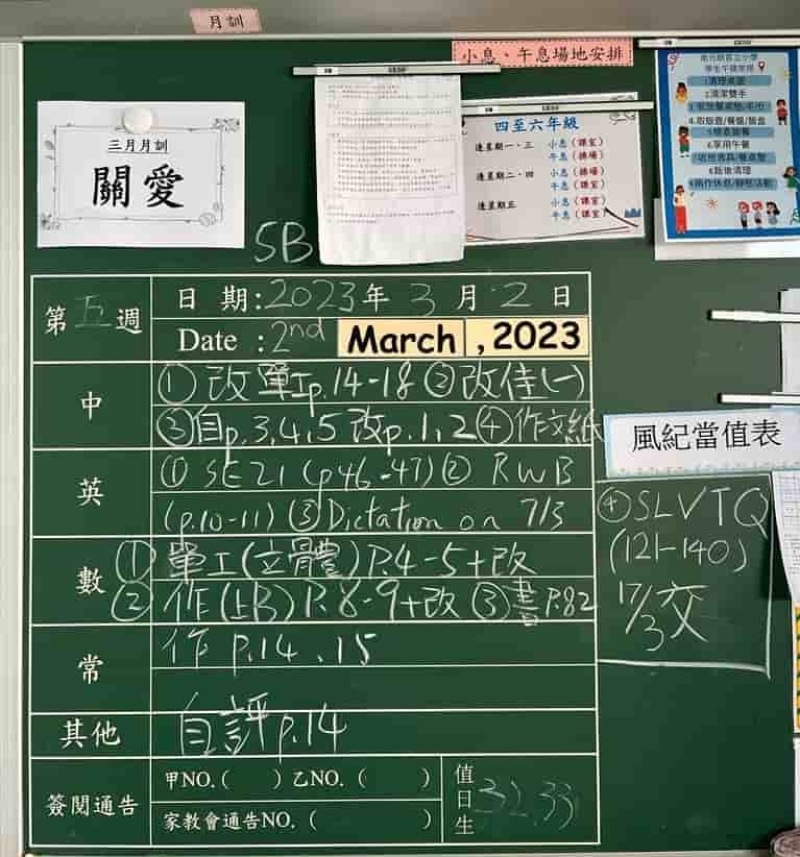 月訓
小息、午息場地安排
三月月訓
關愛
四至六年級
逢星期一、三 小息（課室）
午息（操場）
逢星期二、四 小息（操場）
午息（課室）
逢星期五 小息（課室）
午息（課室）
學生午膳常規
2.清潔雙手
4.取飯壺/餐盤/飯盒
6.享用午餐
8.飯後清理
5B
第五週
日期:2023年3月2日
Date : 2nd March , 2023
中
① 改單工p.14-18 ②改佳(一)
③自p.3,4,5 改p.1,2 ④作文紙
英
① SE21 (p46-47) ② RWB
(p.10-11) ③ Dictation on 7/3
④SLVTQ
(121-140)
17/3交
數
① 單工(立體)P.4-5+改
② 作(上B)P.8-9+改 ③書P.82
常
作 P.14、15
其他
自評p.14
簽閱通告
甲NO.( ) 乙NO.( )
家教會通告NO.( )
值日生
32,33
風紀當值表